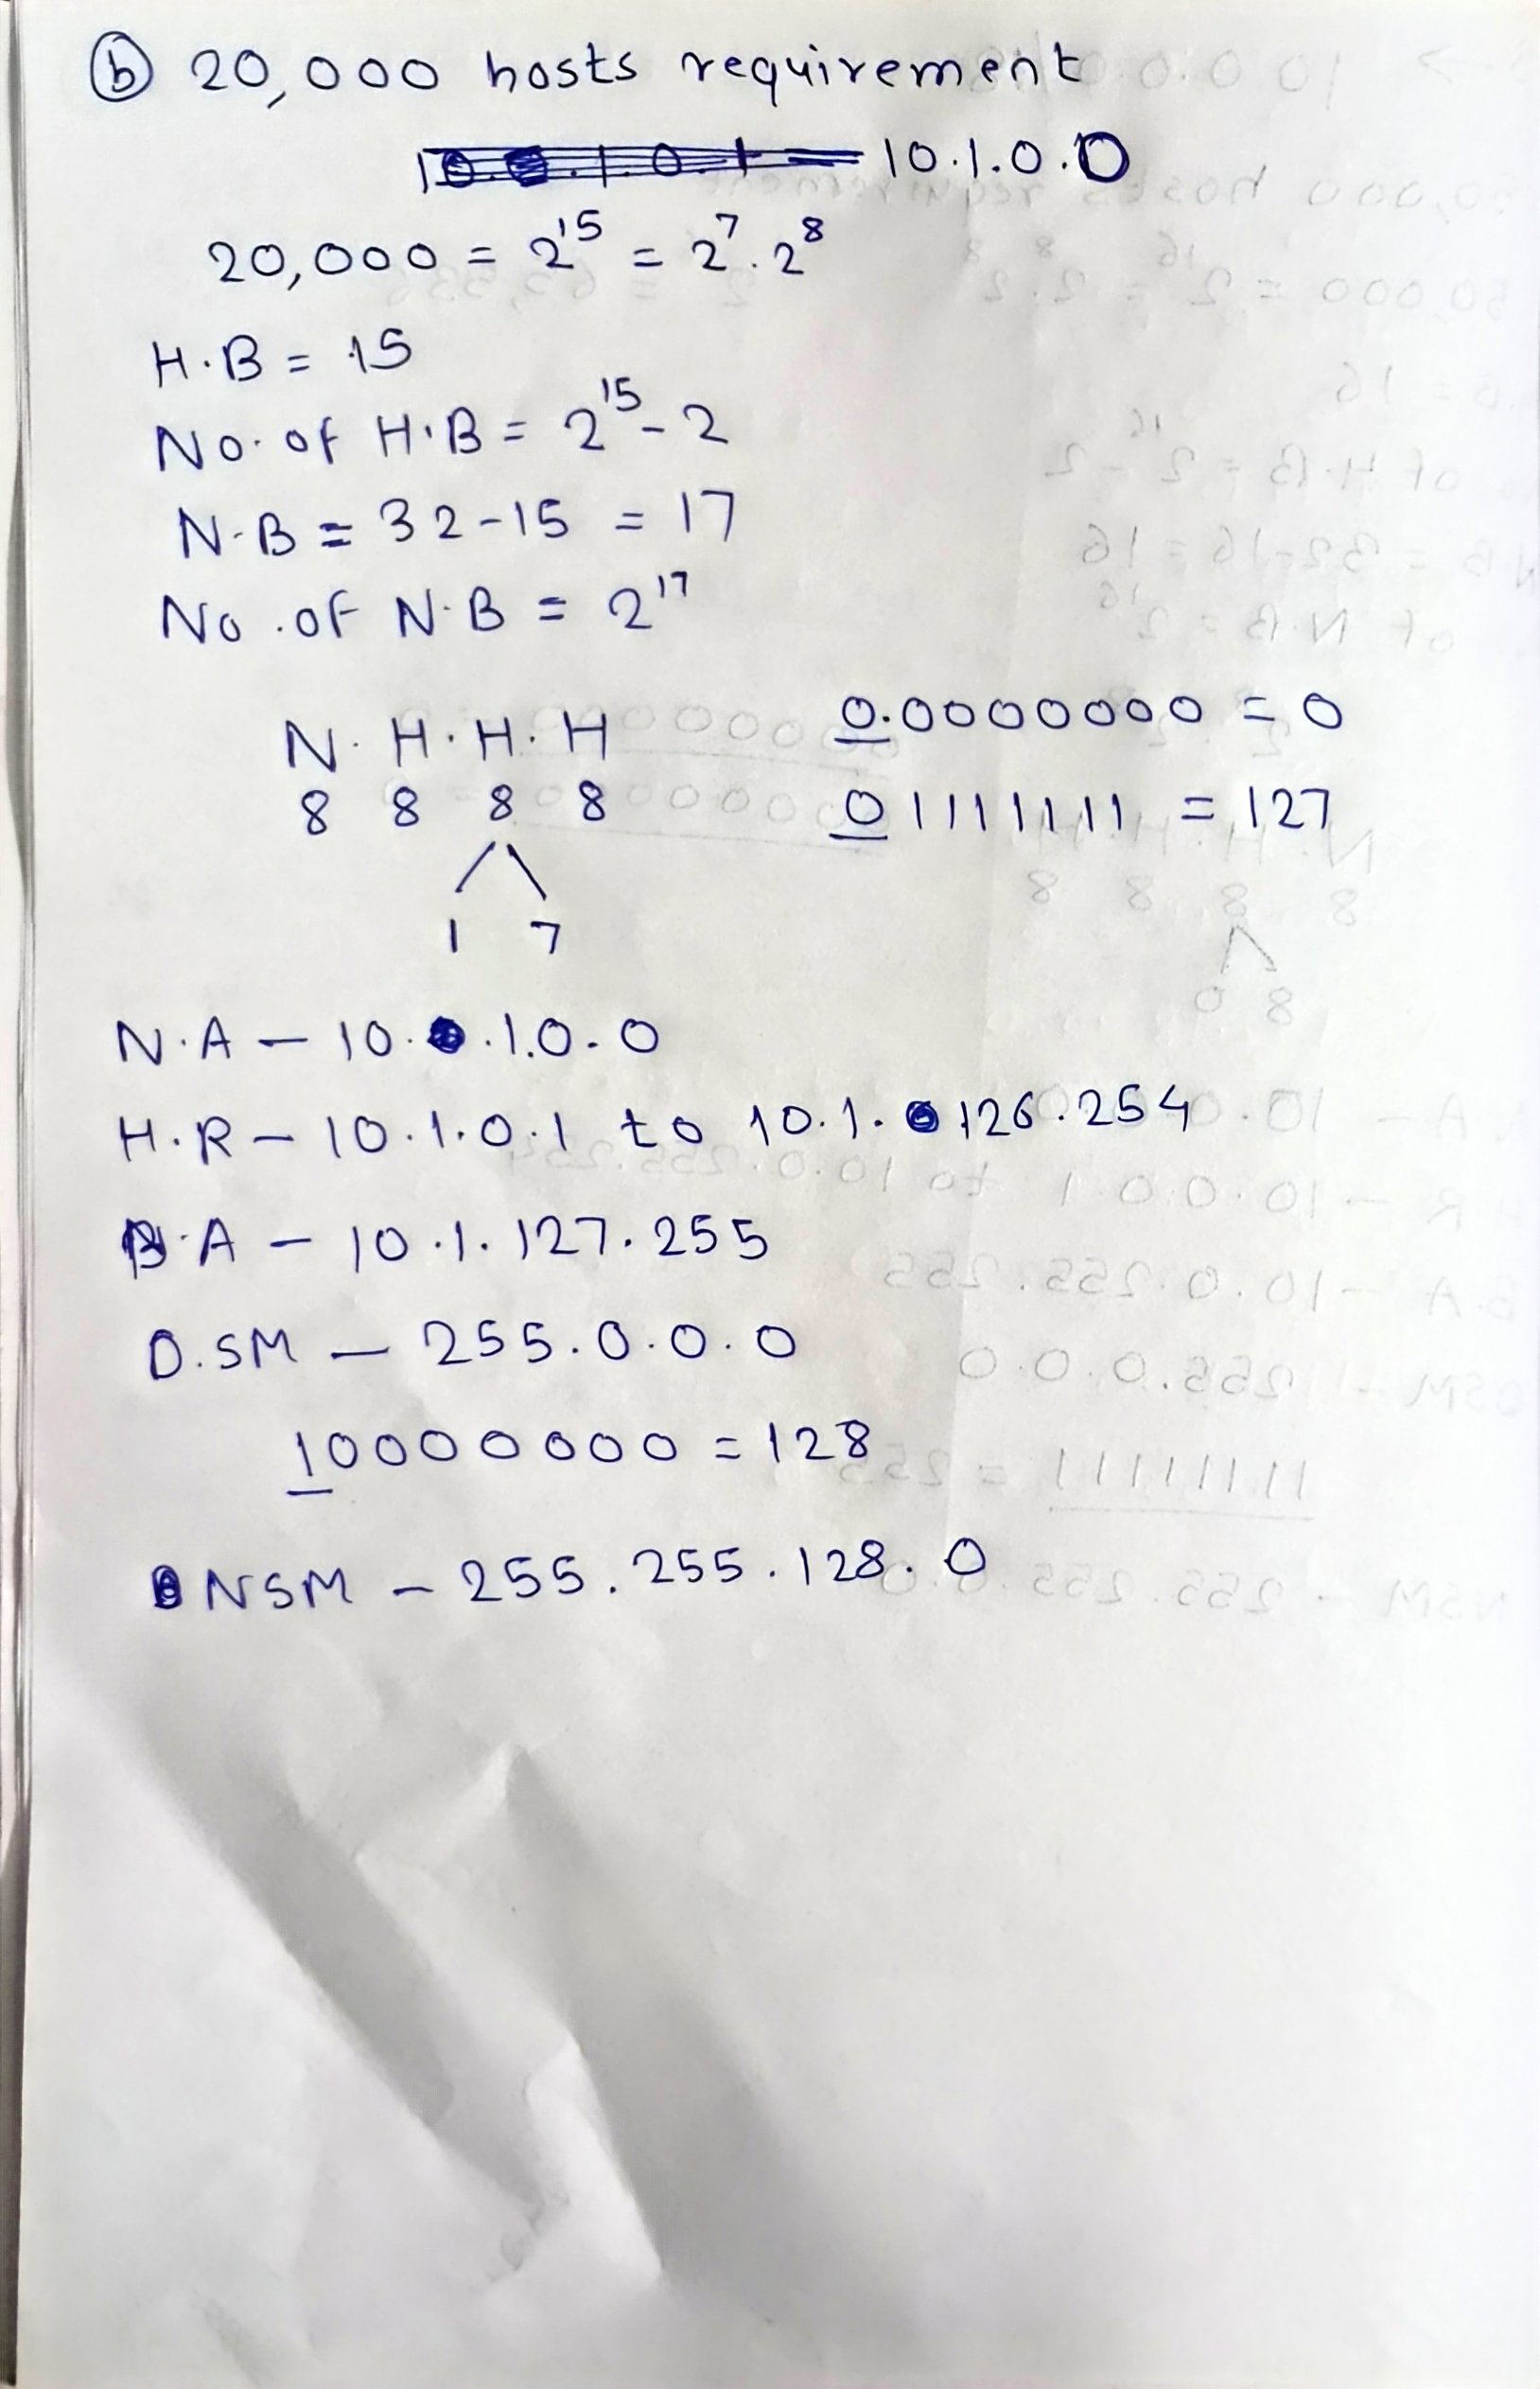 (b) 20,000 hosts requirement
10.1.0.0
20,000 = 2^15 = 2^7 . 2^8
H.B = 15
No. of H.B = 2^15 - 2
N.B = 32-15 = 17
No. of N.B = 2^17
N. H. H. H 0.0000000 = 0
8 8 8 8 01111111 = 127
1 7
N.A - 10. .1.0.0
H.R - 10.1.0.1 to 10.1. 126.254
B.A - 10.1.127.255
D.SM - 255.0.0.0
10000000 = 128
NSM - 255.255.128.0